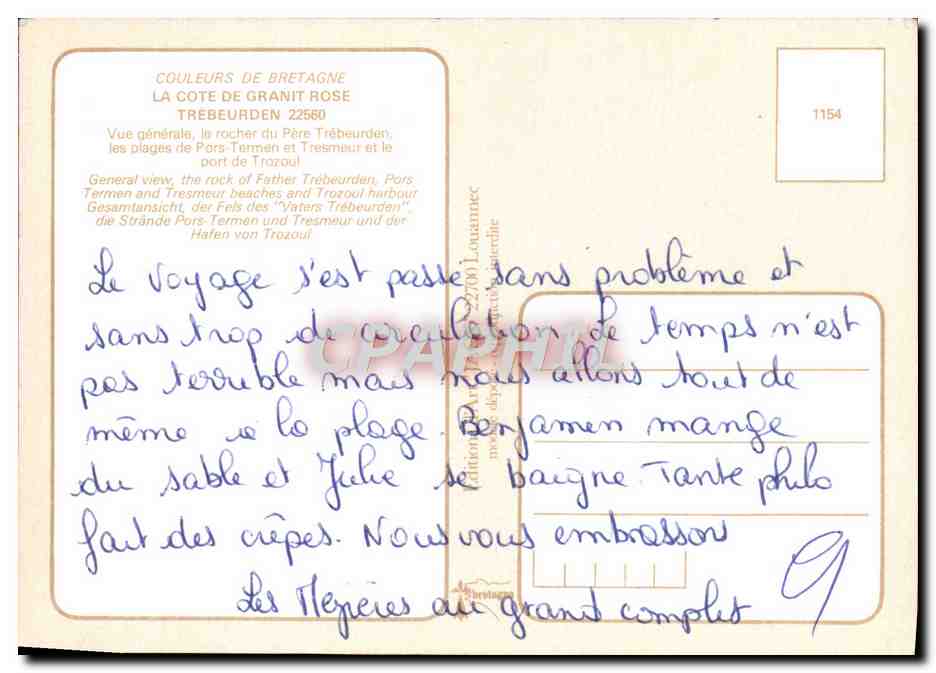 COULEURS DE BRETAGNE
LA COTE DE GRANIT ROSE
TRÉBEURDEN 22560
Vue générale, le rocher du Père Trébeurden,
les plages de Pors-Termen et Tresmeur et le
port de Trozoul
General view, the rock of Father Trébeurden, Pors
Termen and Tresmeur beaches and Trozoul harbour
Gesamtansicht, der Fels des "Vaters Trébeurden",
die Strände Pors-Termen und Tresmeur und der
Hafen von Trozoul
1154
Editions d'Art 22700 Louannec
modèle déposé - reproduction interdite
Le voyage s'est passé sans problème et
sans trop de circulation. Le temps n'est
pas terrible mais nous allons tout de
même à la plage. Benjamen mange
du sable et Julie se baigne. Tante philo
fait des crêpes. Nous vous embrassons
Les Mézières au grand complet
bretagne
CPAPHIL